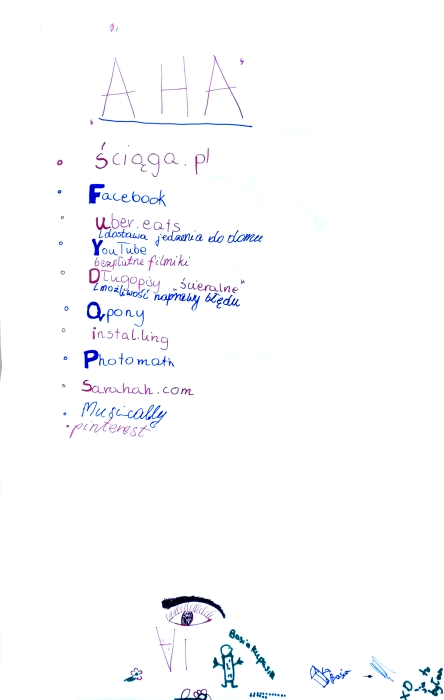 AHA
ściąga.pl
Facebook
uber.eats
(dostawa jedzenia do domu
YouTube
bezpłatne filmiki
Długopisy "ścieralne"
(możliwość naprawy błędu
Qpony
instal.ling
Photomath
Sarahah.com
Musically
pinterest
Basia